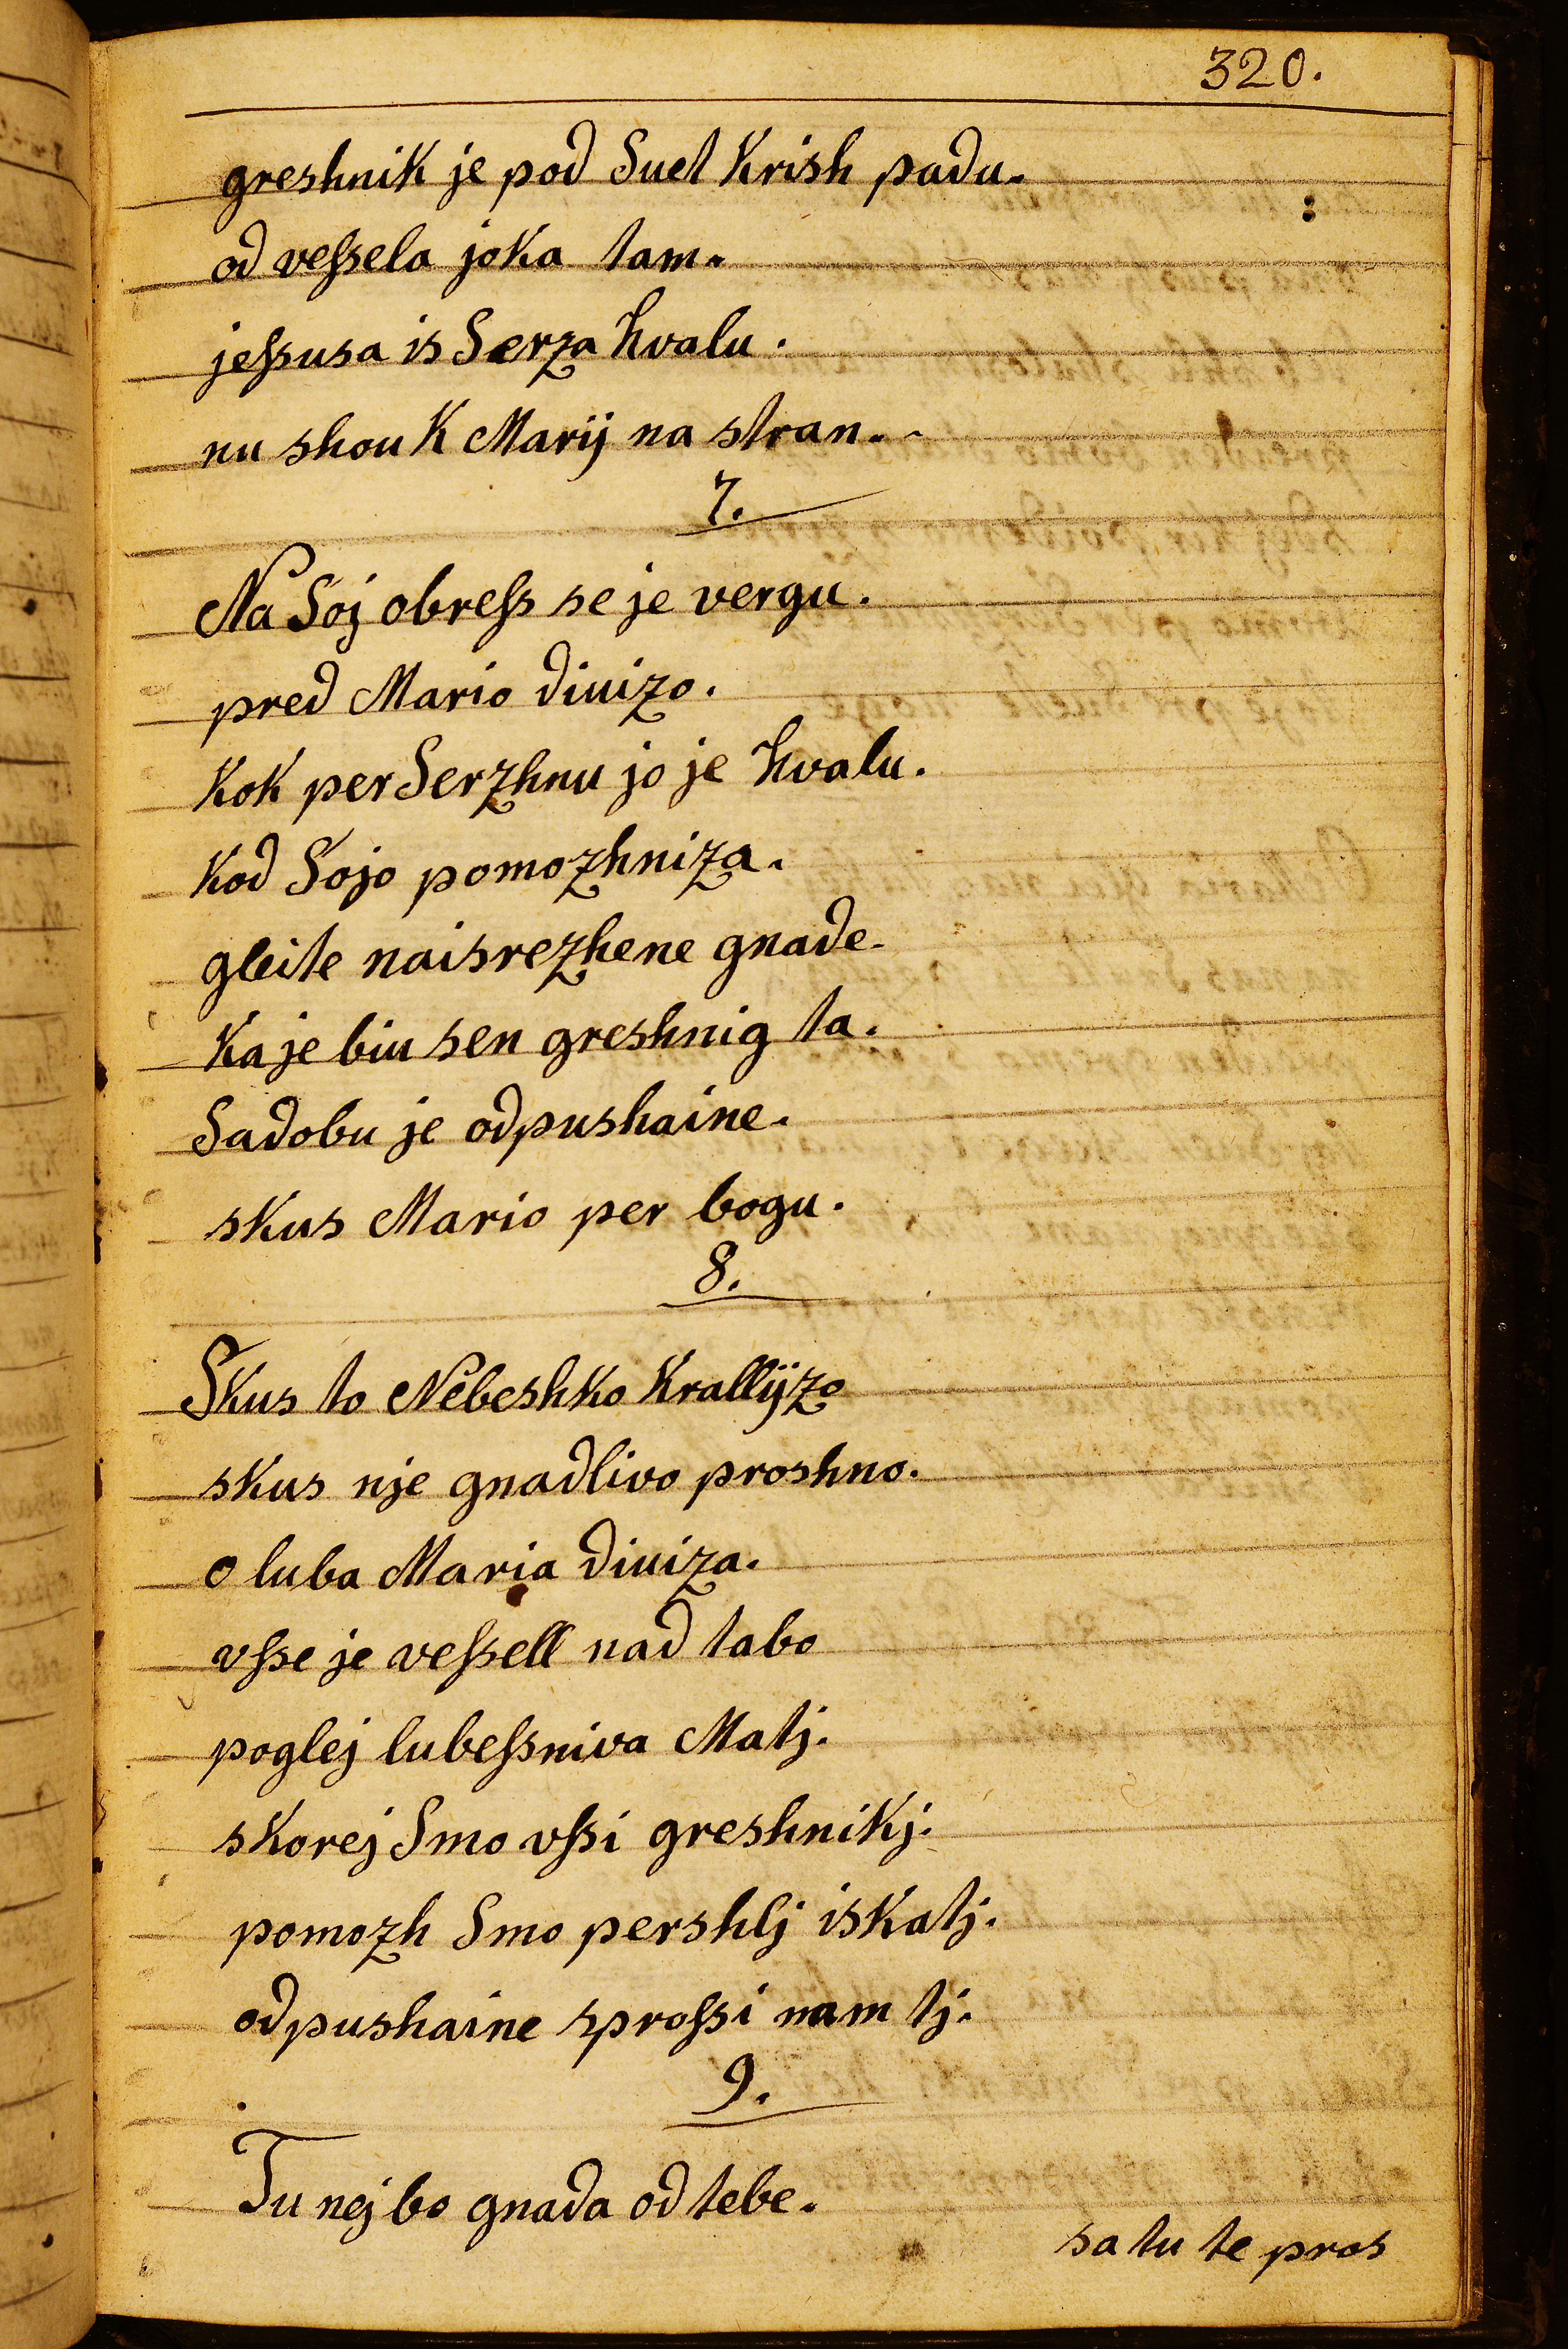 320.
greshnik je pod Suet Krish padu.
od veſsela joka tam.
jeſsusa is Serza hvalu.
nu shou K Marij na stran.
7.
Na Soj obreſs se je vergu.
pred Mario diuizo.
Kok per Serzhnu jo je hvalu.
Kod Sojo pomozhniza.
gleite naisrezhene gnade.
Ka je biu sen greshnig ta.
Sadobu je odpushaine.
skus Mario per bogu.
8.
Skus to Nebeshko Krallijzo
skus nje gnadlivo proshno.
o luba Maria diuiza.
vſse je veſsell nad tabo
poglej lubeſsniva Matj.
skorej Smo vſsi greshnikj.
pomozh Smo pershlj iskatj.
odpushaine sproſsi nam tj.
9.
Tu nej bo gnada od tebe.
sa tu te pros